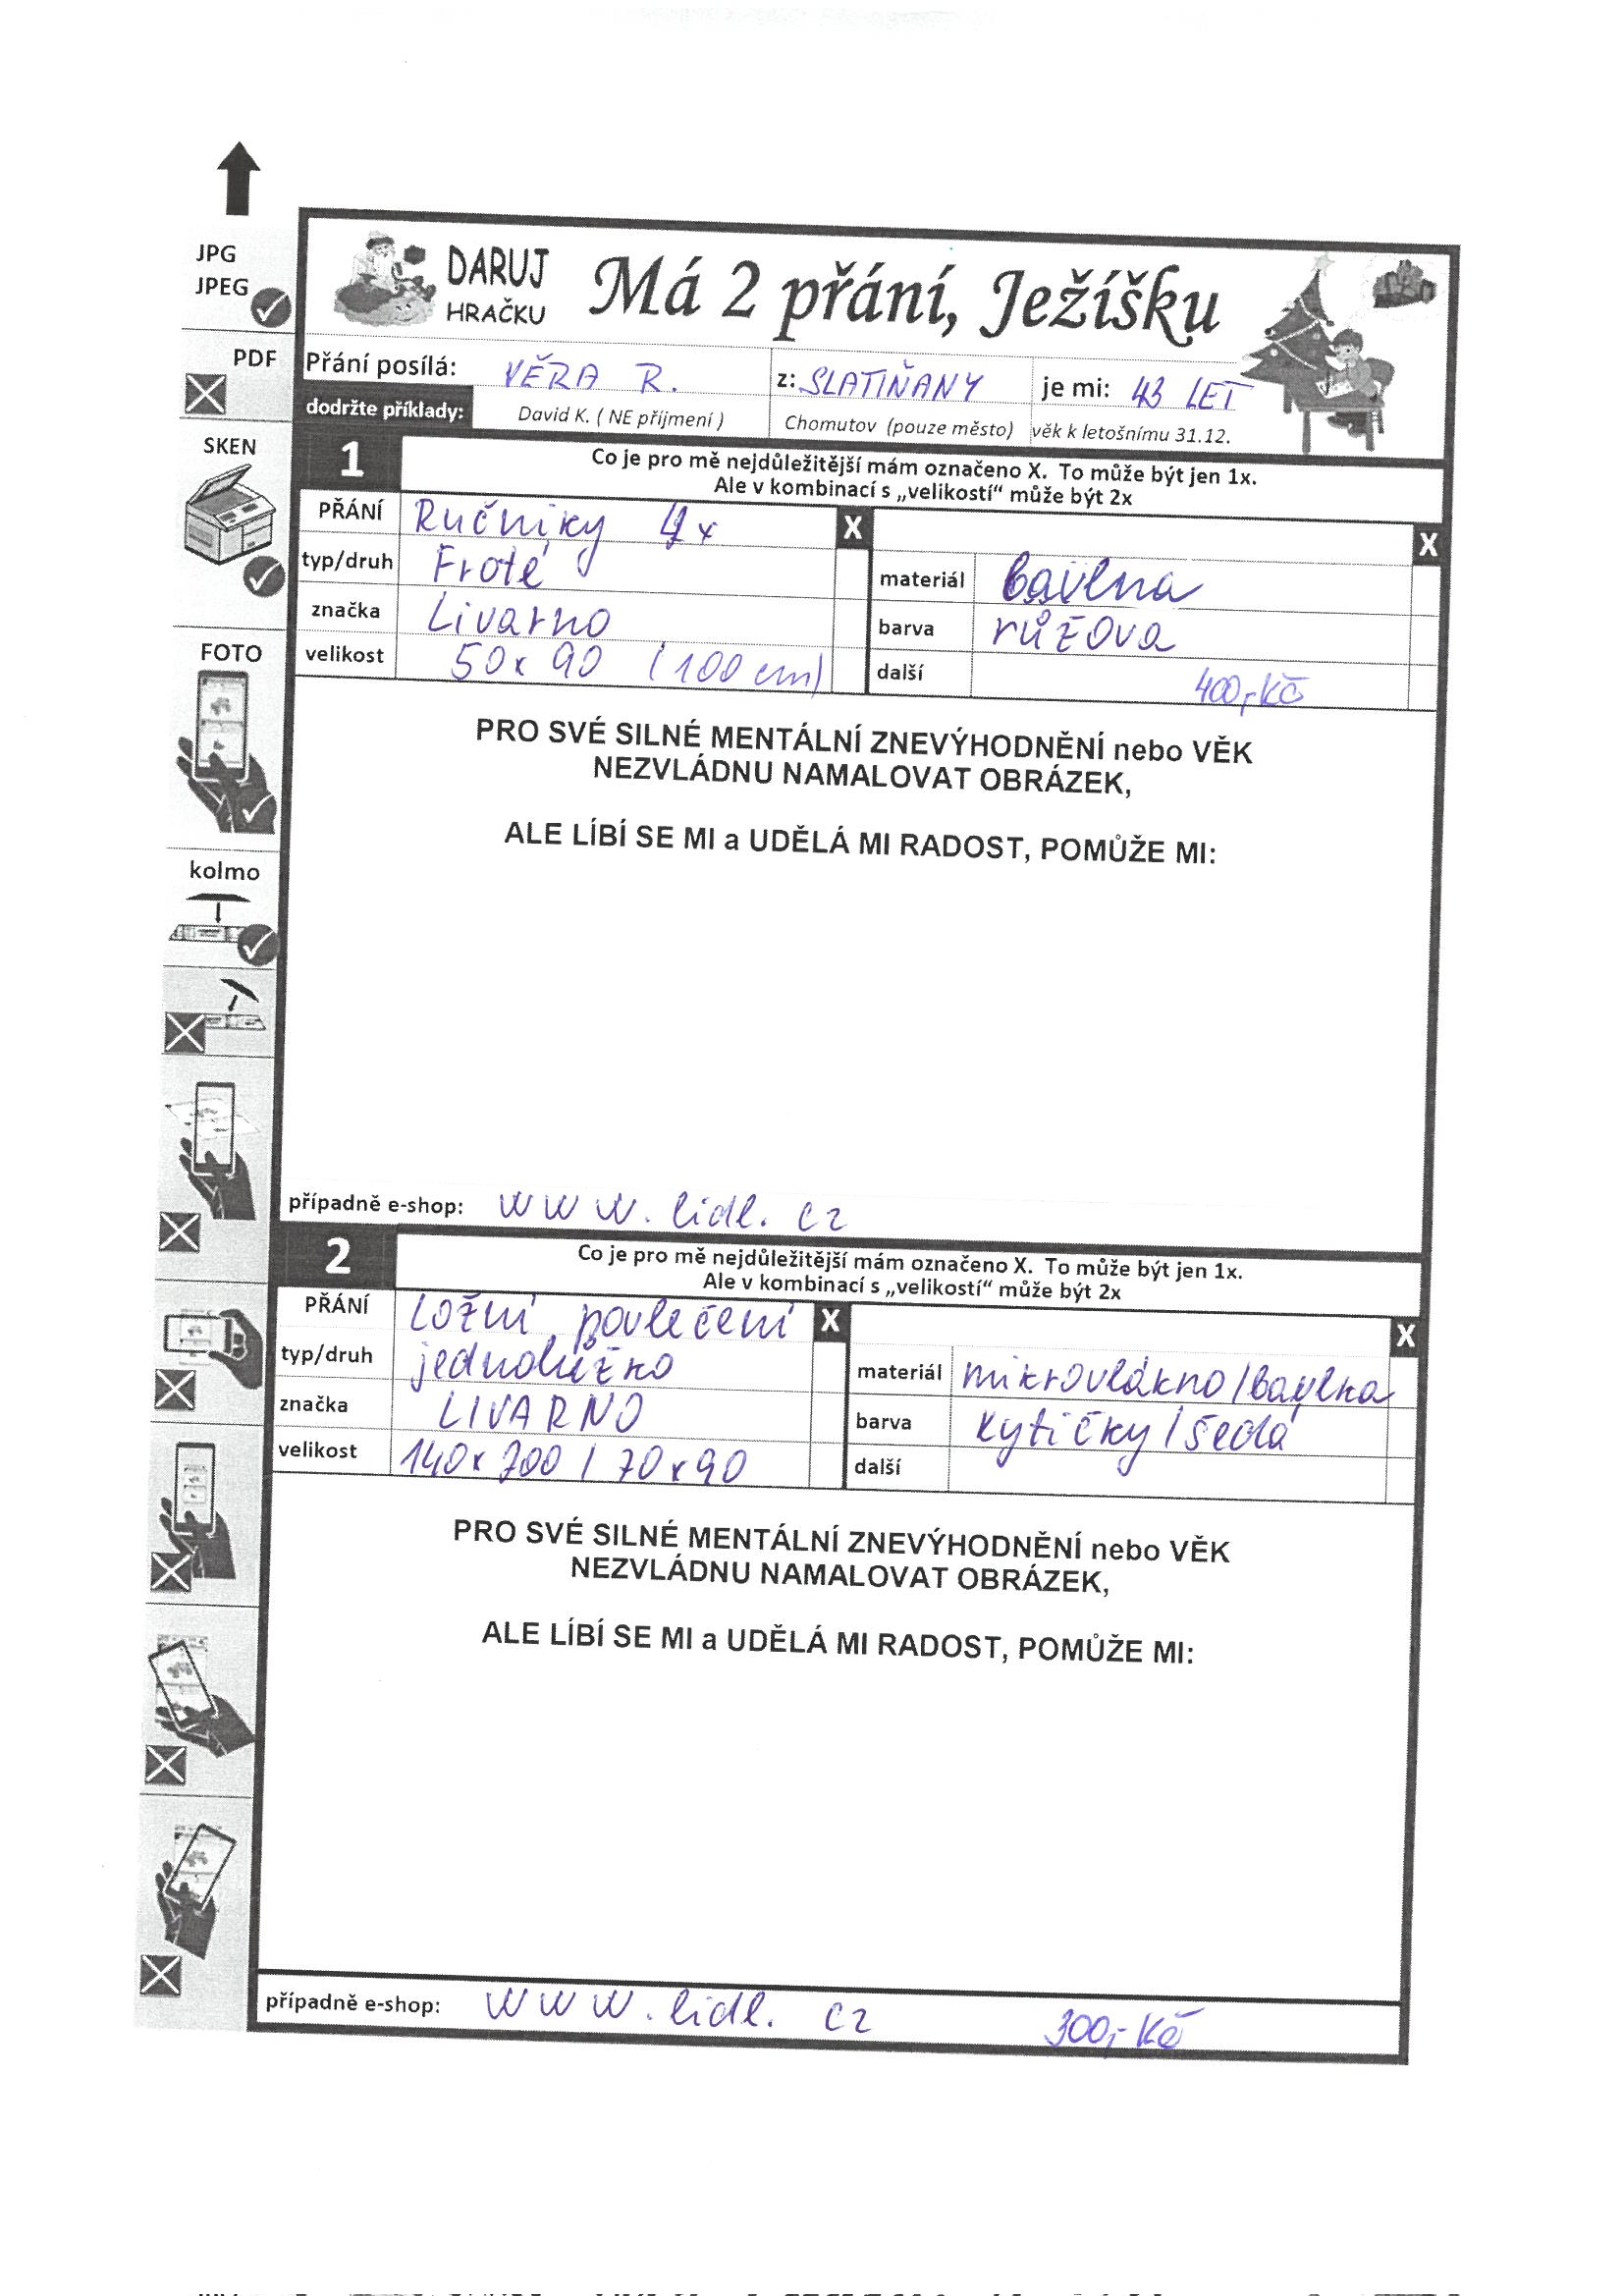 JPG
JPEG
PDF
SKEN
FOTO
kolmo
DARUJ
HRAČKU
Má 2 přání, Ježíšku
Přání posílá: VĚRA R. z: SLATIŇANY je mi: 43 LET
dodržte příklady: David K. ( NE příjmení ) Chomutov (pouze město) věk k letošnímu 31.12.
1 Co je pro mě nejdůležitější mám označeno X. To může být jen 1x.
Ale v kombinací s „velikostí“ může být 2x
PŘÁNÍ Ručníky 4x X X
typ/druh Froté materiál bavlna
značka Livarno barva růžova
velikost 50x90 (100 cm) další 400,-Kč
PRO SVÉ SILNÉ MENTÁLNÍ ZNEVÝHODNĚNÍ nebo VĚK
NEZVLÁDNU NAMALOVAT OBRÁZEK,
ALE LÍBÍ SE MI a UDĚLÁ MI RADOST, POMŮŽE MI:
případně e-shop: www.lidl.cz
2 Co je pro mě nejdůležitější mám označeno X. To může být jen 1x.
Ale v kombinací s „velikostí“ může být 2x
PŘÁNÍ Ložní povlečení X X
typ/druh jednolůžko materiál mikrovlákno/bavlna
značka LIVARNO barva kytičky/šedá
velikost 140x200 / 70x90 další
PRO SVÉ SILNÉ MENTÁLNÍ ZNEVÝHODNĚNÍ nebo VĚK
NEZVLÁDNU NAMALOVAT OBRÁZEK,
ALE LÍBÍ SE MI a UDĚLÁ MI RADOST, POMŮŽE MI:
případně e-shop: www.lidl.cz 300,-Kč